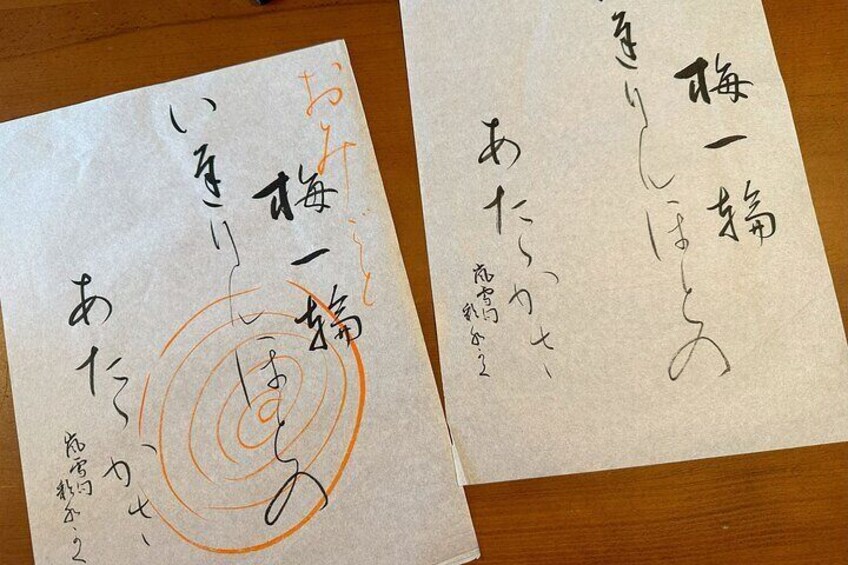 おみごと
梅一輪
いちりんほとの
あたゝかさ
嵐雪句
梅一輪
ちりんほとの
あたゝかさ
嵐雪句